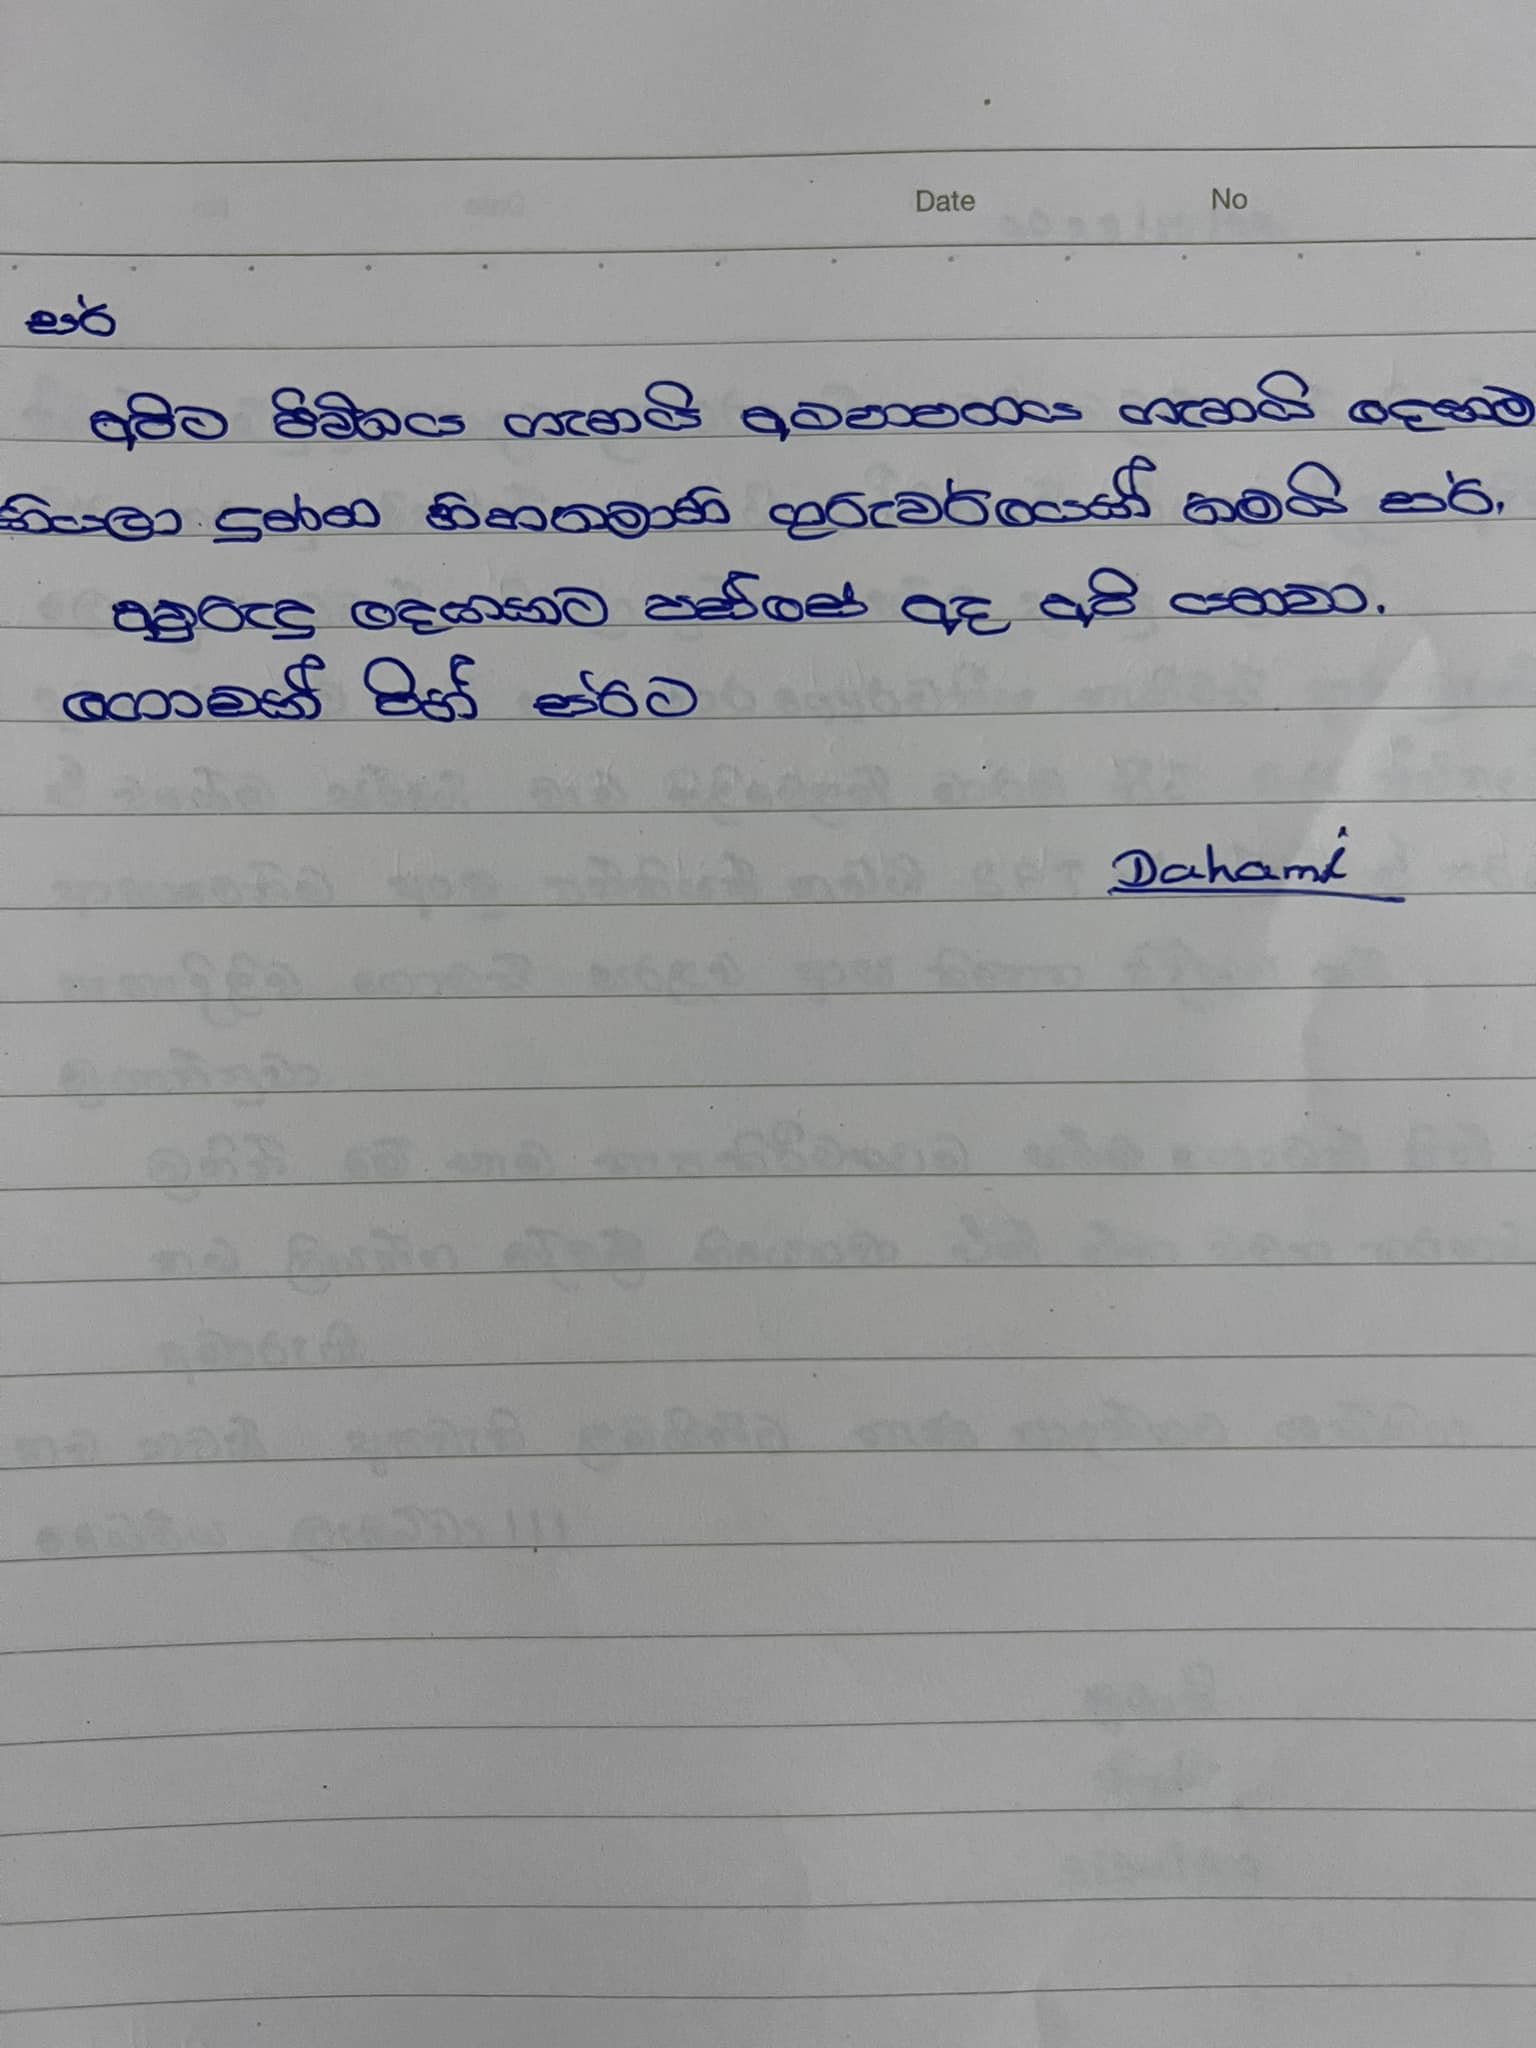 Date No
සර්
අපිට ජීවිතය ගැනයි අධ්‍යාපනය ගැනයි දෙකම
කියලා දුන්න හිතතමානි ගුරුවර්යෙක් තමයි සර්.
අවුරුදු දෙකකට පස්සේ අද අපි යනවා.
ගොඩක් පින් සර්ට
Dahami